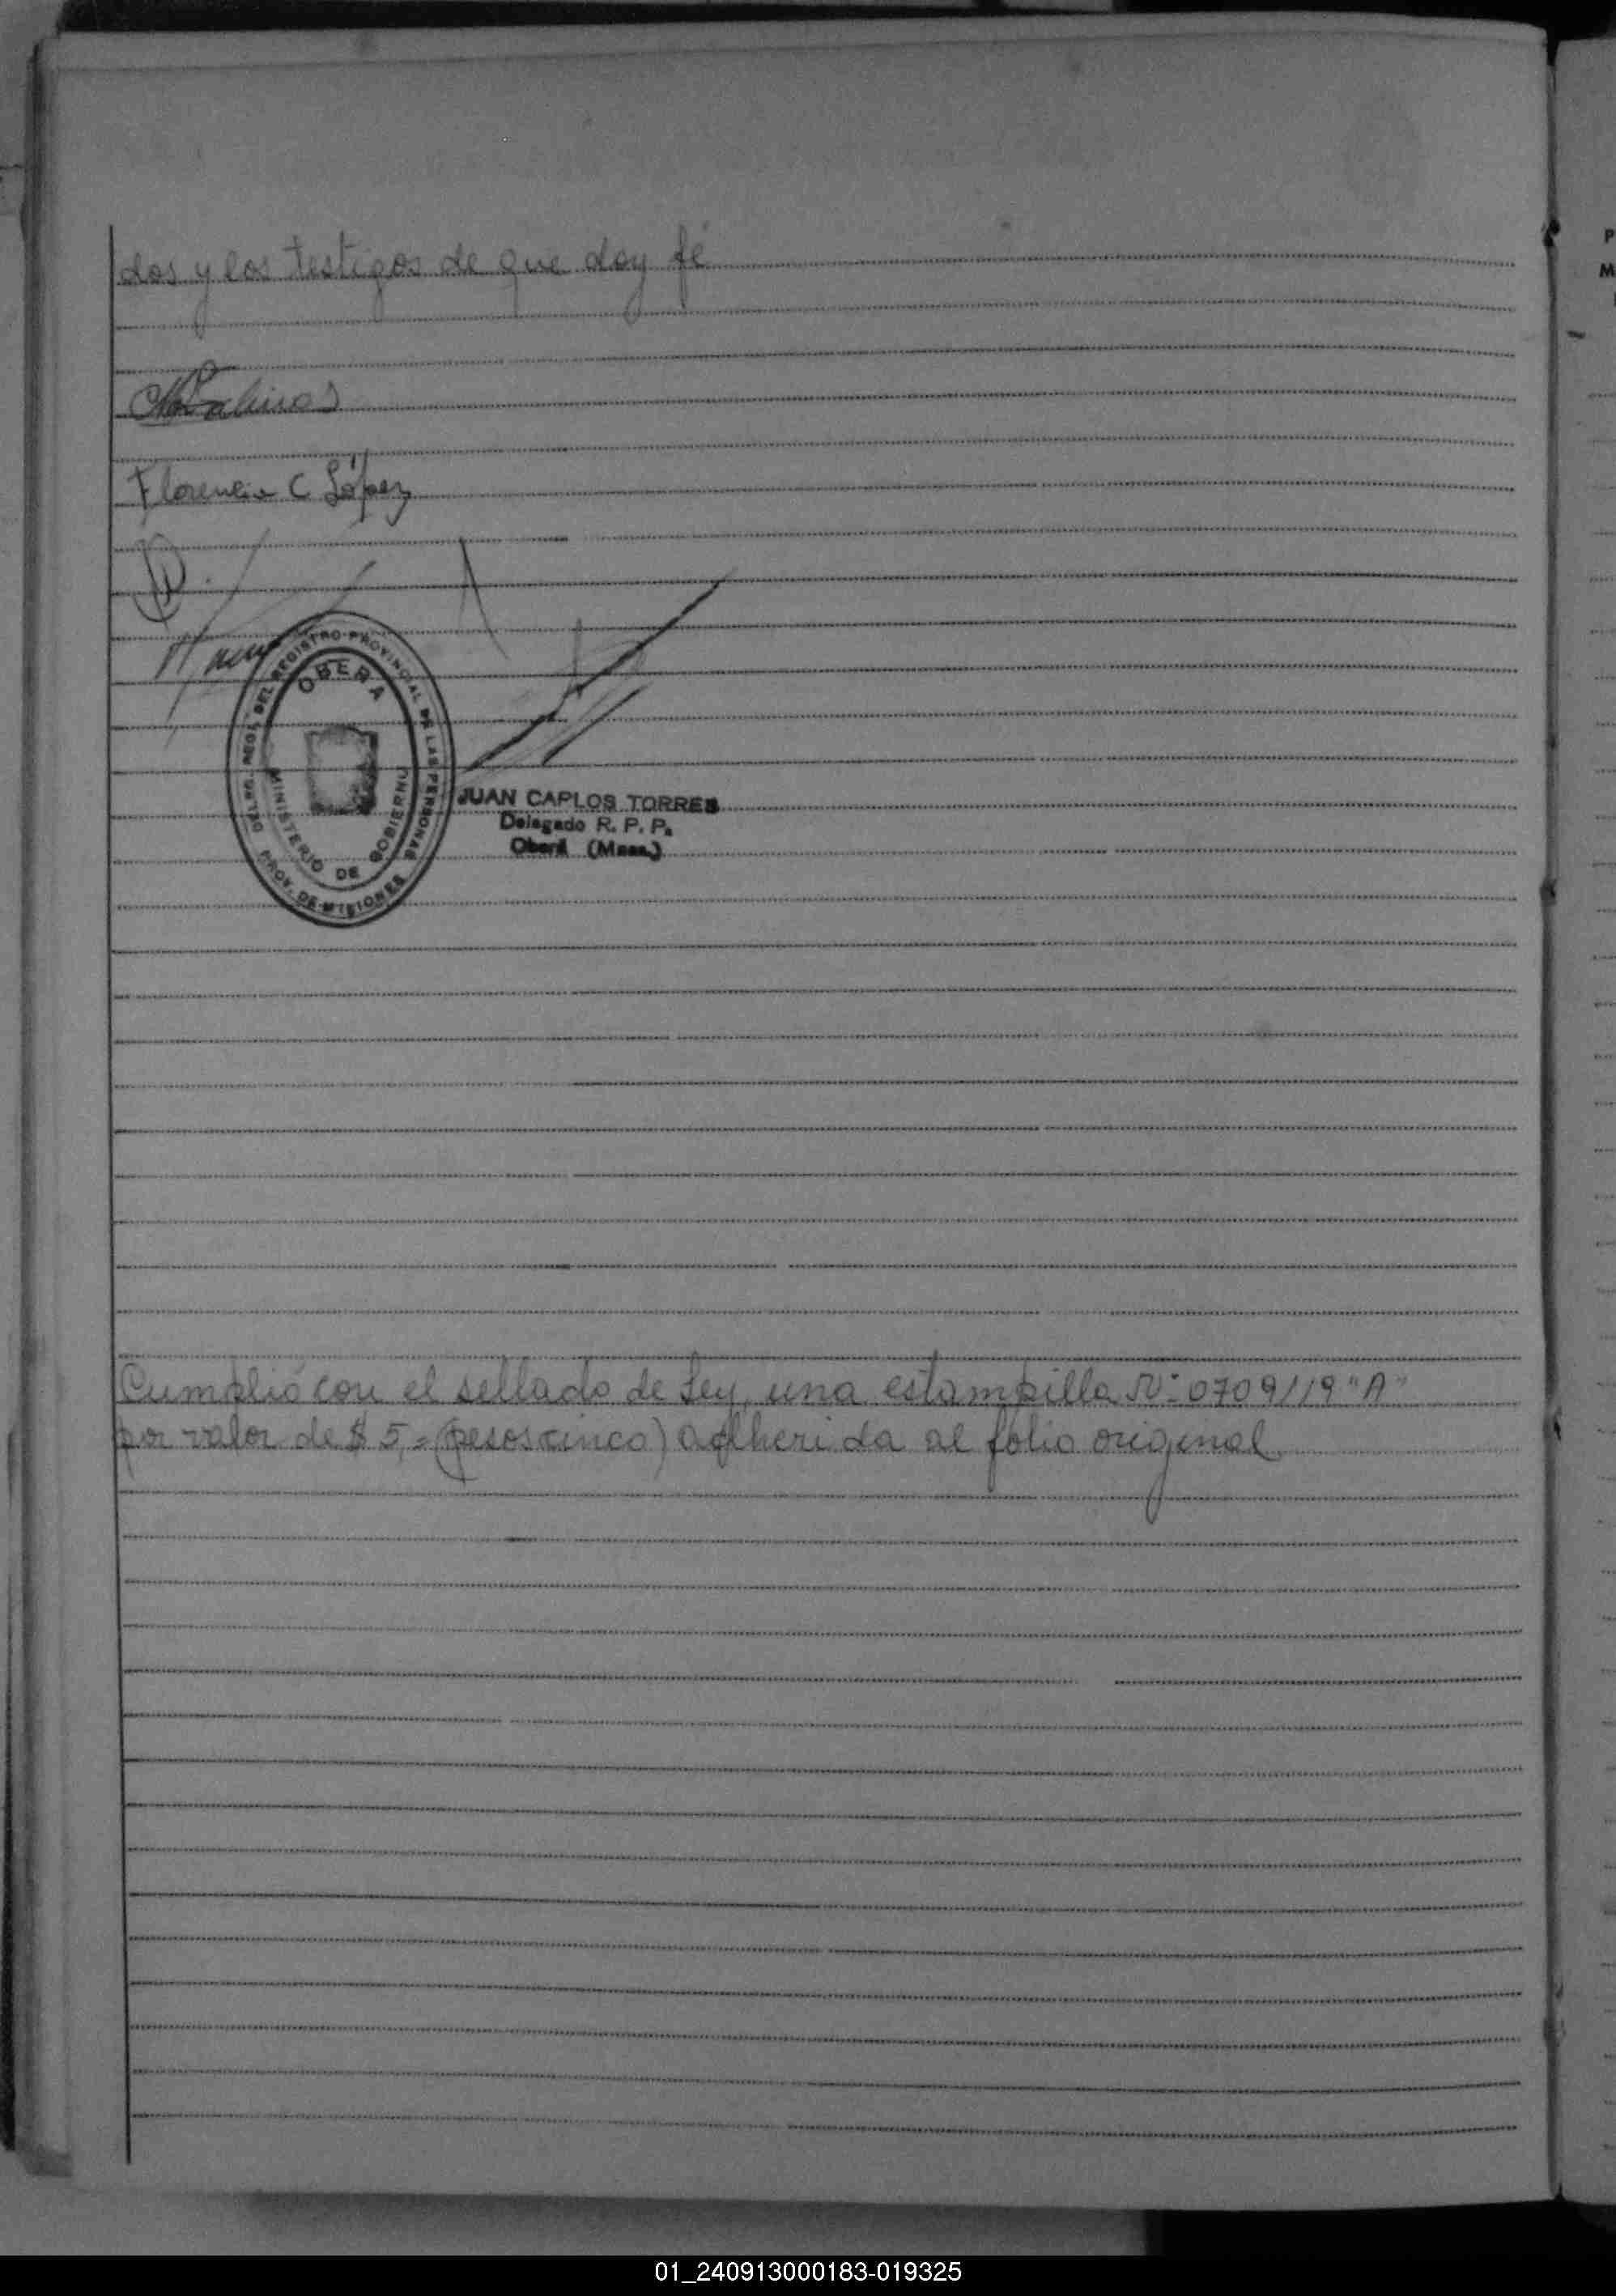 dos y los testigos de que doy fé
Florencia C López
DEL REGISTRO PROVINCIAL DE LAS PERSONAS
OBERA
MINISTERIO DE GOBIERNO
PROV. DE MISIONES
JUAN CARLOS TORRES
Delegado R. P. P.
Oberá (Mnes.)
Cumplió con el sellado de Ley, una estampilla Nº 0709119 "A"
por valor de $ 5,= (pesos cinco) adherida al fólio original
P
M
01_240913000183-019325